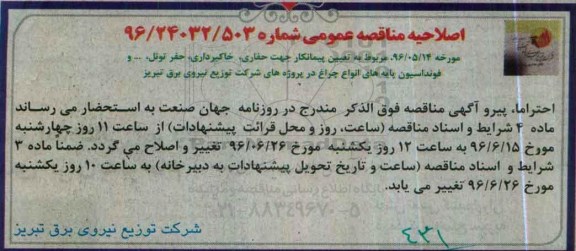 اصلاحیه مناقصه عمومی شماره ۹۶/۲۴۰۳۲/۵۰۳
مورخه ۹۶/۰۵/۱۴ مربوط به تعیین پیمانکار جهت حفاری، خاکبرداری، حفر تونل، ... و
فونداسیون پایه های انواع چراغ در پروژه های شرکت توزیع نیروی برق تبریز
احتراما، پیرو آگهی مناقصه فوق الذکر مندرج در روزنامه جهان صنعت به استحضار می رساند
ماده ۴ شرایط و اسناد مناقصه (ساعت، روز و محل قرائت پیشنهادات) از ساعت ۱۱ روز چهارشنبه
مورخ ۹۶/۶/۱۵ به ساعت ۱۲ روز یکشنبه مورخ ۹۶/۰۶/۲۶ تغییر و اصلاح می گردد. ضمنا ماده ۳
شرایط و اسناد مناقصه (ساعت و تاریخ تحویل پیشنهادات به دبیرخانه) به ساعت ۱۰ روز یکشنبه
مورخ ۹۶/۶/۲۶ تغییر می یابد.
پایگاه اطلاع رسانی مناقصه و مزایده
۰۲۱-۸۸۳۴۹۶۷۰-۵
شرکت توزیع نیروی برق تبریز
۴۳۱